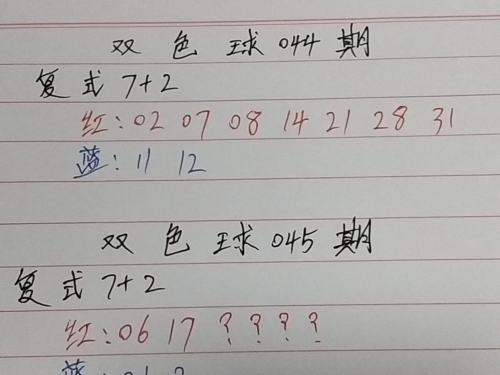 双色球044期
复式7+2
红:02 07 08 14 21 28 31
蓝:11 12
双色球045期
复式7+2
红:06 17 ? ? ? ?